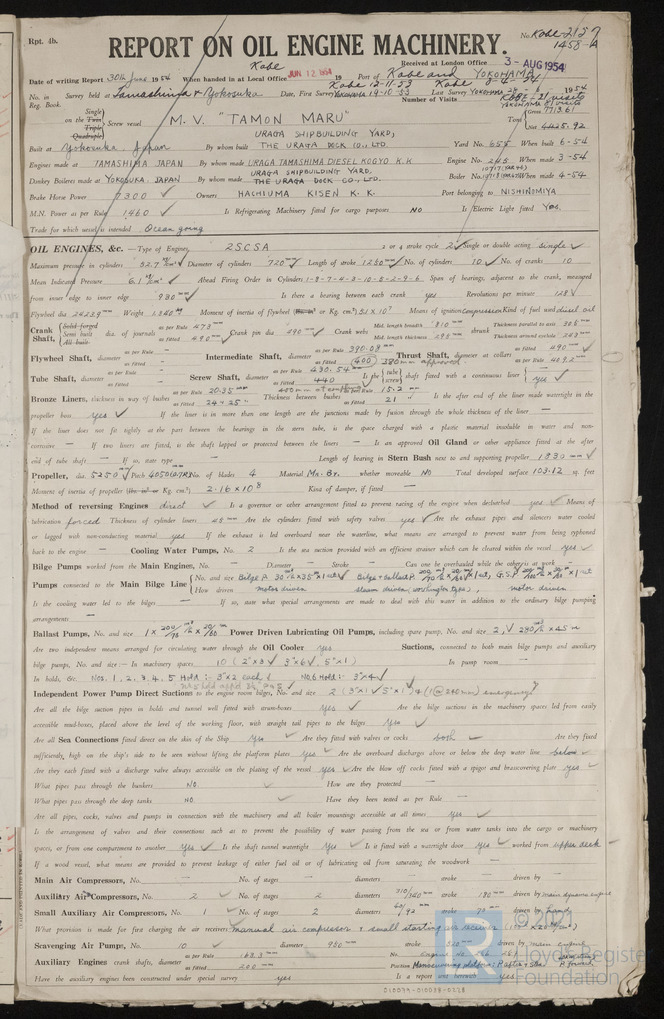 Rpt. 4b.
REPORT ON OIL ENGINE MACHINERY.
No. Kobe 2127
1458-A
Received at London Office 3 - AUG 1954
Date of writing Report 30th June 1954 When handed in at Local Office Kobe JUN. 12. 1954 19 Port of Kobe and YOKOHAMA
No. in Reg. Book. Survey held at Tamashima & Yokosuka Date, First Survey Kobe 12-11-53 Yokohama 19-10-53 Last Survey Kobe 1954
Number of Visits KOBE - 21 visits
Single on the Twin Triple Quadruple Screw vessel M. V. "TAMON MARU" Tons Gross 7713.61
Net 4425.92
URAGA SHIPBUILDING YARD,
Built at Yokosuka. Japan By whom built THE URAGA DOCK CO., LTD. Yard No. 655 When built 6-54
Engines made at TAMASHIMA JAPAN By whom made URAGA TAMASHIMA DIESEL KOGYO K.K Engine No. 245 When made 3-54
URAGA SHIPBUILDING YARD,
Donkey Boilers made at YOKOSUKA. JAPAN By whom made THE URAGA DOCK CO., LTD. Boiler No. When made 4-54
Brake Horse Power 7300 Owners HACHIUMA KISEN K. K. Port belonging to NISHINOMIYA
M.N. Power as per Rule 1460 Is Refrigerating Machinery fitted for cargo purposes NO Is Electric Light fitted Yes.
Trade for which vessel is intended Ocean going
OIL ENGINES, &c. —Type of Engines 2SCSA 2 or 4 stroke cycle 2 Single or double acting single
Maximum pressure in cylinders 52.7 Diameter of cylinders 720 Length of stroke 1250 No. of cylinders 10 No. of cranks 10
Mean Indicated Pressure 6.1 Ahead Firing Order in Cylinders 1-8-7-4-3-10-5-2-9-6 Span of bearings, adjacent to the crank, measured
from inner edge to inner edge 930 Is there a bearing between each crank yes Revolutions per minute 128
Flywheel dia. Weight Moment of inertia of flywheel Means of ignition compression Kind of fuel used diesel oil
Crank Shaft, Solid forged Semi built All built dia. of journals as per Rule 473 as fitted 490 Crank pin dia 490 Crank webs Mid. length breadth 810 Mid. length thickness 295 shrunk Thickness parallel to axis 305 Thickness around eyehole
Flywheel Shaft, diameter as per Rule — as fitted — Intermediate Shaft, diameter as per Rule 390.08 as fitted (400) 380 mm approved Thrust Shaft, diameter at collars as per Rule as fitted
Tube Shaft, diameter as per Rule — as fitted — Screw Shaft, diameter as per Rule 430.54 as fitted 440 Is the tube screw shaft fitted with a continuous liner yes
Bronze Liners, thickness in way of bushes as per Rule 20.35 as fitted 24 - 25 Thickness between bushes as per Rule 15.2 as fitted 21 Is the after end of the liner made watertight in the
propeller boss yes If the liner is in more than one length are the junctions made by fusion through the whole thickness of the liner —
If the liner does not fit tightly at the part between the bearings in the stern tube, is the space charged with a plastic material insoluble in water and non-
corrosive — If two liners are fitted, is the shaft lapped or protected between the liners — Is an approved Oil Gland or other appliance fitted at the after
end of tube shaft — If so, state type — Length of bearing in Stern Bush next to and supporting propeller 1830
Propeller, dia. 5250 Pitch 4050 No. of blades 4 Material Mn. Br. whether moveable NO Total developed surface 103.12 sq. feet
Moment of inertia of propeller 2.16 x 10⁸ Kind of damper, if fitted —
Method of reversing Engines direct Is a governor or other arrangement fitted to prevent racing of the engine when declutched yes Means of
lubrication forced Thickness of cylinder liners 45 Are the cylinders fitted with safety valves yes Are the exhaust pipes and silencers water cooled
or lagged with non-conducting material yes If the exhaust is led overboard near the waterline, what means are arranged to prevent water from being syphoned
back to the engine — Cooling Water Pumps, No. 2 Is the sea suction provided with an efficient strainer which can be cleared within the vessel yes
Bilge Pumps worked from the Main Engines, No. — Diameter — Stroke — Can one be overhauled while the other is at work —
Pumps connected to the Main Bilge Line No. and size Bilge P. Bilge & Ballast P. G.S.P.
How driven motor driven steam driven motor driven
Is the cooling water led to the bilges — If so, state what special arrangements are made to deal with this water in addition to the ordinary bilge pumping
arrangements —
Ballast Pumps, No. and size Power Driven Lubricating Oil Pumps, including spare pump, No. and size
Are two independent means arranged for circulating water through the Oil Cooler yes Suctions, connected to both main bilge pumps and auxiliary
bilge pumps, No. and size:— In machinery spaces 10 (2"x3 3"x6 5"x1) In pump room —
In holds, &c. Nos. 1, 2, 3, 4, 5 Hold: 3"x2 each No. 6 Hold: 3"x4
Independent Power Pump Direct Suctions to the engine room bilges, No. and size 2 (3"x1 5"x1)
Are all the bilge suction pipes in holds and tunnel well fitted with strum-boxes yes Are the bilge suctions in the machinery spaces led from easily
accessible mud-boxes, placed above the level of the working floor, with straight tail pipes to the bilges yes
Are all Sea Connections fitted direct on the skin of the Ship yes Are they fitted with valves or cocks both Are they fixed
sufficiently high on the ship's side to be seen without lifting the platform plates yes Are the overboard discharges above or below the deep water line below
Are they each fitted with a discharge valve always accessible on the plating of the vessel yes Are the blow off cocks fitted with a spigot and brass covering plate yes
What pipes pass through the bunkers NO How are they protected —
What pipes pass through the deep tanks NO Have they been tested as per Rule —
Are all pipes, cocks, valves and pumps in connection with the machinery and all boiler mountings accessible at all times yes
Is the arrangement of valves and their connections such as to prevent the possibility of water passing from the sea or from water tanks into the cargo or machinery
spaces, or from one compartment to another yes Is the shaft tunnel watertight yes Is it fitted with a watertight door yes worked from upper deck
If a wood vessel, what means are provided to prevent leakage of either fuel oil or lubricating oil from saturating the woodwork —
Main Air Compressors, No. — No. of stages — diameters — stroke — driven by —
Auxiliary Air Compressors, No. 2 No. of stages 2 diameters stroke 180 driven by
Small Auxiliary Air Compressors, No. 1 No. of stages 2 diameters stroke driven by hand
What provision is made for first charging the air receivers manual air compressor & small starting air receiver
Scavenging Air Pumps, No. 10 diameter 980 stroke 520 driven by main engine
Auxiliary Engines crank shafts, diameter as per Rule 168.3 as fitted 200 No. Position
Have the auxiliary engines been constructed under special survey yes Is a report sent herewith yes
© 2021
Lloyd's Register
Foundation
010039-010058-0228